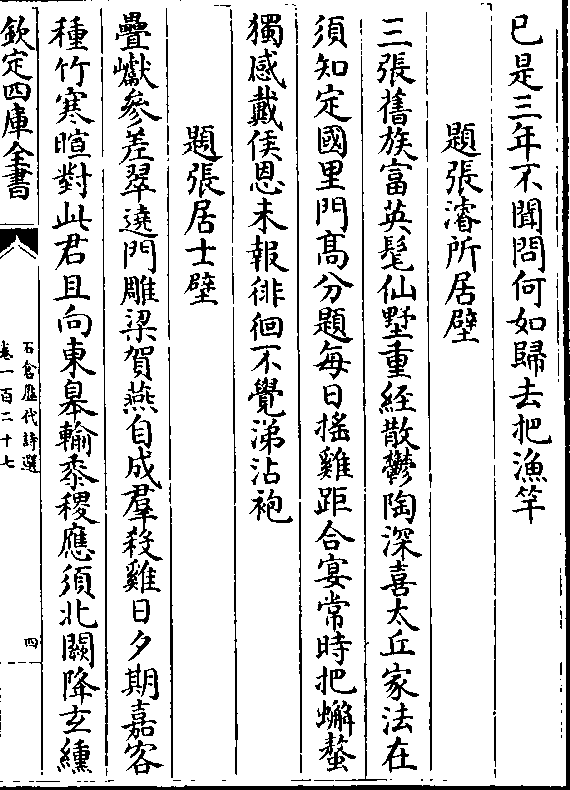 已是三年不聞問何如歸去把漁竿
題張濬所居壁
三張舊族富英髦仙墅重經散鬱陶深喜太丘家法在
須知定國里門髙分題每日搖雞距合宴常時把蠏螯
獨感戴侯恩未報徘徊不覺涕沾袍
題張居士壁
疊巘參差翠遶門雕梁賀燕自成羣殺雞日夕期嘉客
種竹寒暄對此君且向東臯輸黍稷應須北闕降玄纁
欽定四庫全書
石倉歴代詩選
卷一百二十七
四